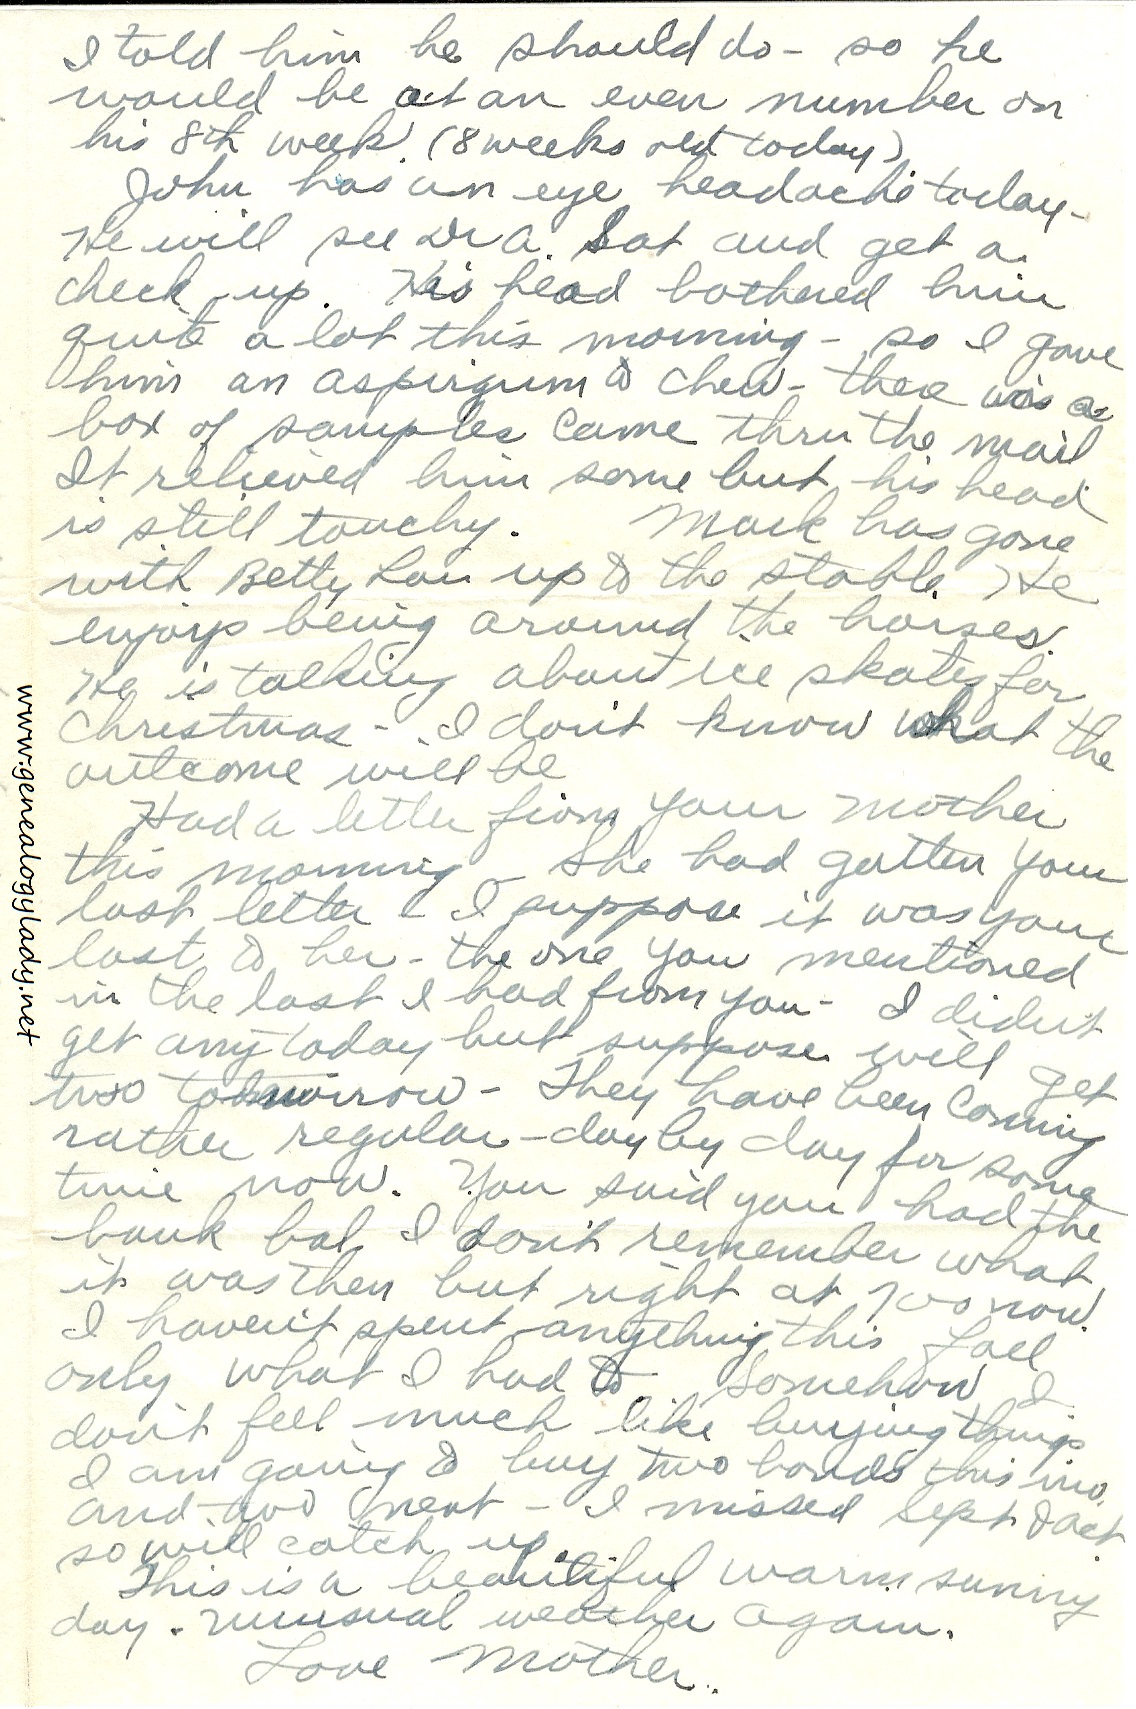 I told him he should do - so he
would be at an even number on
his 8th week. (8 weeks old today)
John has an eye headache today -
He will see Dr A. Sat and get a
check up. His head bothered him
quite a lot this morning - so I gave
him an aspirgum to chew - there was a
box of samples came thru the mail
It relieved him some but his head
is still touchy. Mark has gone
with Betty Lou up to the stable. He
enjoys being around the horses.
He is talking about ice skates for
Christmas - I don't know what the
outcome will be
Had a letter from your Mother
this morning - She had gotten your
last letter - I suppose it was your
last to her - the one you mentioned
in the last I had from you - I didn't
get any today but suppose will get
two tomorrow - They have been coming
rather regular - day by day for some
time now. You said you had the
bank bal, I don't remember what
it was then but right at 700 now.
I haven't spent anything this Fall
only what I had to. Somehow I
don't feel much like buying things
I am going to buy two bonds this mo.
and two next - I missed Sept & Oct
so will catch up.
This is a beautiful warm sunny
day. unusual weather again.
Love Mother.
www.genealogylady.net